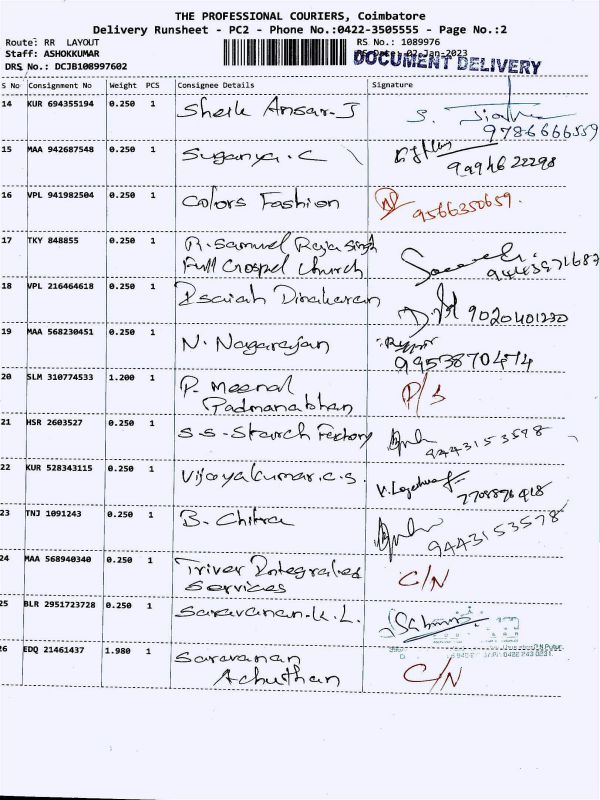 THE PROFESSIONAL COURIERS, Coimbatore
Delivery Runsheet - PC2 - Phone No.:0422-3505555 - Page No.:2
Route: RR LAYOUT RS No.: 1089976
Staff: ASHOKKUMAR RS Date: 02-Jan-2023
DOCUMENT DELIVERY
DRS No.: DCJB108997602
S No Consignment No Weight PCS Consignee Details Signature
14 KUR 694355194 0.250 1 Sheik Ansar-J
9786666559
15 MAA 942687548 0.250 1 Suganya.C
16 VPL 941982504 0.250 1 Colors Fashion 9566350659.
17 TKY 848855 0.250 1 R. Samuel Raja Singh
Full Gospel Church
18 VPL 216464618 0.250 1 Esaiah Dinakaran 9020401230
19 MAA 568230451 0.250 1 N. Nagarajan
9953870474
20 SLM 310774533 1.200 1 P. Meenal
Padmanabhan P/S
21 HSR 2603527 0.250 1 S.S-Starch Factory 9443153598
22 KUR 528343115 0.250 1 Vijayakumar.C.S.
23 TNJ 1091243 0.250 1 B. Chitra 9443153578
24 MAA 568940340 0.250 1 Triver Integrated
Services C/N
25 BLR 2951723728 0.250 1 Saravanan.K.L.
26 EDQ 21461437 1.980 1 Saravanan
Achuthan C/N